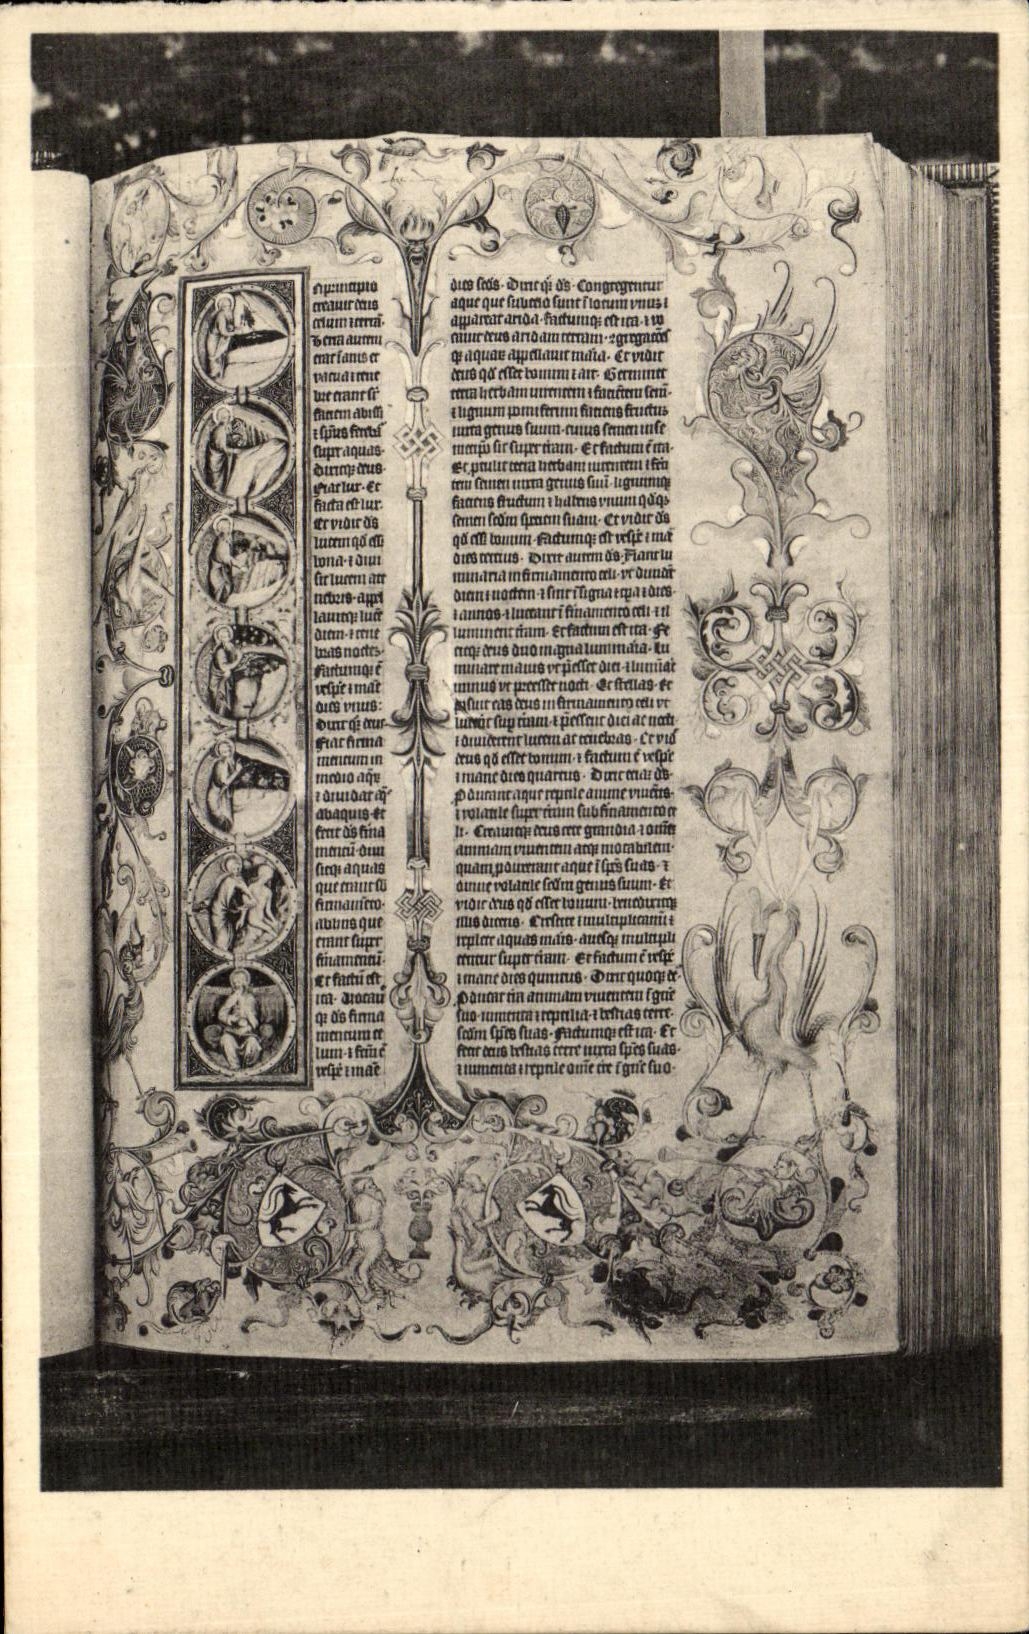 N principio
creauit deus
celum ⁊ terrā.
Terra autem
erat īanis et
vacua ⁊ tene
bre erant sr̄
faciem abissi
⁊ sp̄us
super aquas.
Dixitq; deus
Fiat lux. Et
facta est lux.
Et vidit ds̄
lucem qd̄
bona. ⁊ diui
sit lucem ac
tenebris. appl
lauitq; lucē
diem. ⁊ tene
bras noctē.
Factumq; ē
vesp̄e ⁊ mane
dies vnus:
Dixit q; deus.
Fiat firma
mentum in
medio aq̄ꝝ
⁊ diuidat aq̄s
ab aquis. Et
fecit ds̄ firma
mentū. diui
sitq; aquas
que erant sb̄
firmamēto.
ab hiis que
erant super
firmamentū.
Et factū est
ita. Vocauit
q; ds̄ firma
mentum ce
lum. ⁊ factū ē
vesp̄e ⁊ mane
dies scd̄s. Dixit q; ds̄. Congregentur
aque que sub celo sunt ī locum vnuꝫ ⁊
appareat arida. factumq; est ita. ⁊ vo
cauit deus aridam terram. ꝯgregacōēs
q; aquaꝝ appellauit maria. Et vidit
deus qd̄ esset bonum ⁊ ait. Germinet
terra herbam uirentem ⁊ faciētem semē.
⁊ lignum pomiferum faciens fructuꝫ
iuxta genus suum. cuius semen in se
metip̄o sit super terram. Et factum ē ita.
Et ꝓtulit terra herbam uirentem ⁊ faciē
tem semen iuxta genus suū. lignumq;
faciens fructum ⁊ habens vnum qd̄q;
semen scdm̄ speciem suam. Et vidit ds̄
qd̄ esset bonum. Factumq; est vesp̄e ⁊ mane
dies tercius. Dixit autem ds̄. Fiant lu
minaria in firmamento celi. vt diuidant
diem ⁊ noctem ⁊ sint ī signa ⁊ tp̄a ⁊ dies.
⁊ annos. ⁊ luceant ī firmamento celi. ⁊ il
luminent terram. Et factum est ita. Fe
citq; deus duo magna luminaria. Lu
minare maius vt p̄esset diei. ⁊ luminare
minus vt preesset nocti. Et stellas. Et
posuit eas deus in firmamento celi vt
lucerēt sup̄ terram. ⁊ p̄essent diei ac nocti.
⁊ diuiderent lucem ac tenebras. Et vidit
deus qd̄ esset bonum. ⁊ factum ē vesp̄e
⁊ mane dies quartus. Dixit eciam ds̄.
Producant aque reptile anime viuētis.
⁊ volatile super terram sub firmamento ce
li. Creauitq; deus cete grandia ⁊ omnem
animam viuentem atq; motabilem.
quam ꝓduxerant aque ī sp̄es suas. ⁊
omne volatile scdm̄ genus suum. Et
vidit deus qd̄ esset bonum. benedixitq;
illis dicens. Crescite ⁊ multiplicamī ⁊
replete aquas maris. auesq; multipli
centur super terram. Et factum ē vesp̄e
⁊ mane dies quintus. Dixit quoq; ds̄.
Producat terra animam viuentem ī gn̄e
suo. iumenta ⁊ reptilia. ⁊ bestias terre.
scdm̄ sp̄es suas. Factumq; est ita. Et
fecit deus bestias terre iuxta sp̄es suas.
⁊ iumenta ⁊ reptile omē ī gn̄e suo.